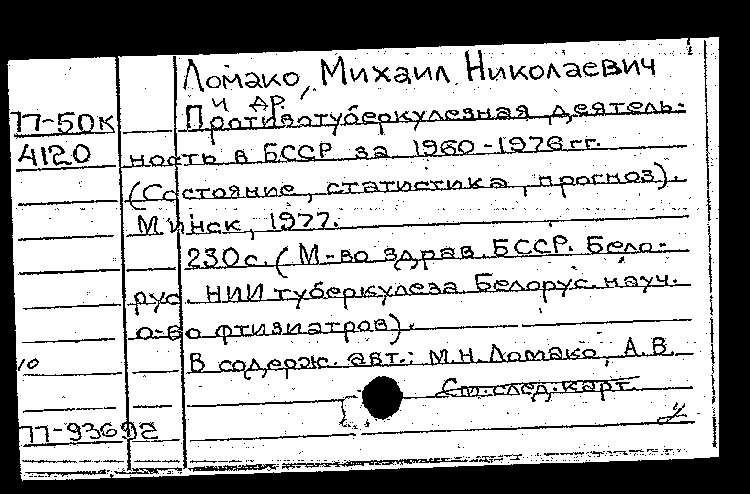 Ломако, Михаил Николаевич
и др.
Противотуберкулезная деятель-
77-50к
4120
ность в БССР за 1960-1976 гг.
(Состояние, статистика, прогноз).
Минск, 1977.
230 с. (М-во здрав. БССР. Бело-
рус. НИИ туберкулеза. Белорус. науч.
о-во фтизиатров).
10
В содерж. авт.: М.Н. Ломако, А.В.
См. след. карт.
77-93692